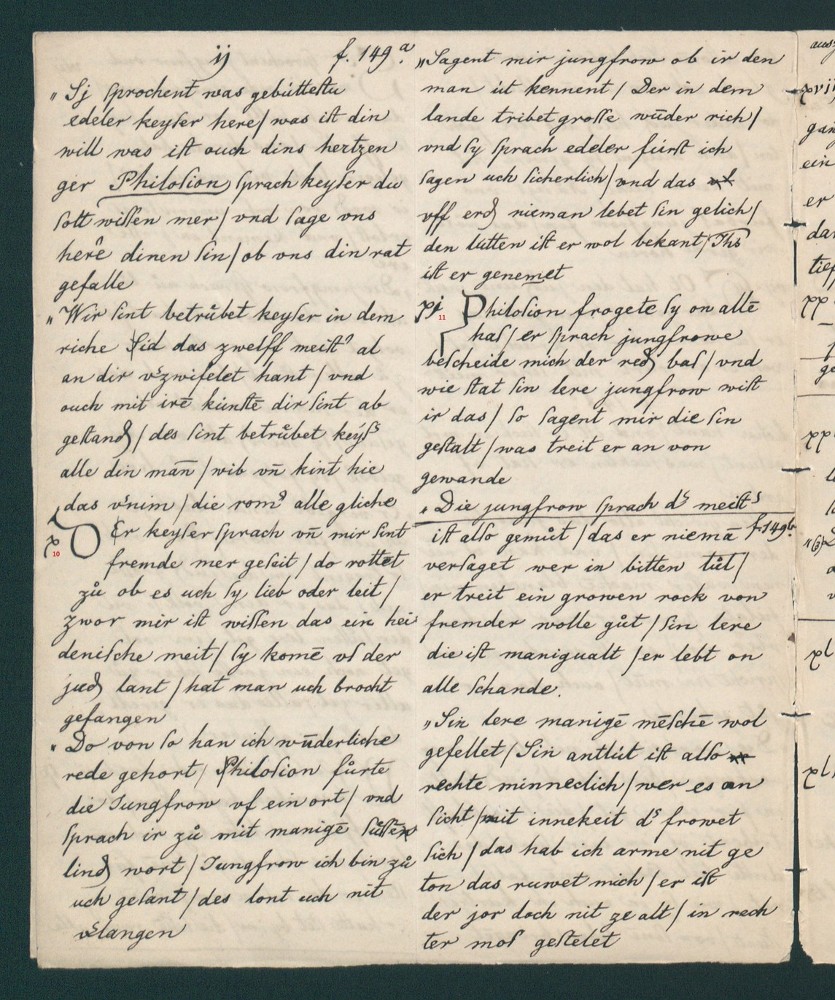 ij f. 149.a
"Sj sprochent was gebúttestu
edeler keyser here / was ist din
will was ist ouch dins hertzen
ger Philosion sprach keyser du
sott wissen mer / vnd sage vns
here dinen sin / ob vns din rat
gefalle
"Wir sint betrůbet keyser in dem
riche Sid das zwelff meist' al
an dir v'zwifelet hant / vnd
ouch mit ire kúnstē dir sint ab
gestand / des sint betrůbet keys'
alle din mān / wib vn̄ kint hie
das v'nim / die rom' alle gliche
x 10 DEr keyser sprach vn̄ mir sint
fremde mer geseit / do rottet
zů ob es uch sy lieb oder leit /
zwor mir ist wissen das ein hei
denische meit / sy komē vs der
jud lant / hat man uch brocht
gefangen
"Do von so han ich wūderliche
rede gehort / Philosion fůrte
die Jungfrow vf ein ort / vnd
sprach ir zů mit manigē sůssen
lind wort / Jungfrow ich bin zů
uch gesant / des lont uch nit
v'langen
"Sagent mir jungfrow ob ir den
man út kennent / Der in dem
lande tribet grosse wūder rich /
vnd sy sprach edeler fúrst ich
sagen uch sicherlich / vnd das
vff erd nieman lebet sin gelich /
den lutten ist er wol bekant / Jhs
ist er genemet
xj 11 Philosion frogete sy on allē
has / er sprach jungfrowe
bescheide mich der red bas / vnd
wie stat sin lere jungfrow wist
ir das / so sagent mir die sin
gestalt / was treit er an von
gewande
"Die jungfrow sprach d' meist'
ist also gemůt / das er niemā f. 149b.
versaget wer in bitten tůt /
er treit ein growen rock von
fremder wolle gůt / sin lere
die ist manigualt / er lebt on
alle schande.
"Sin lere manigē mēschē wol
gefellet / Sin antlút ist also
rechte minneclich / wer es an
sicht / mit innekeit d' frowet
sich / das hab ich arme nit ge
ton das ruwet mich / er ist
der jor doch nit ze alt / in rech
ter mos gestelet